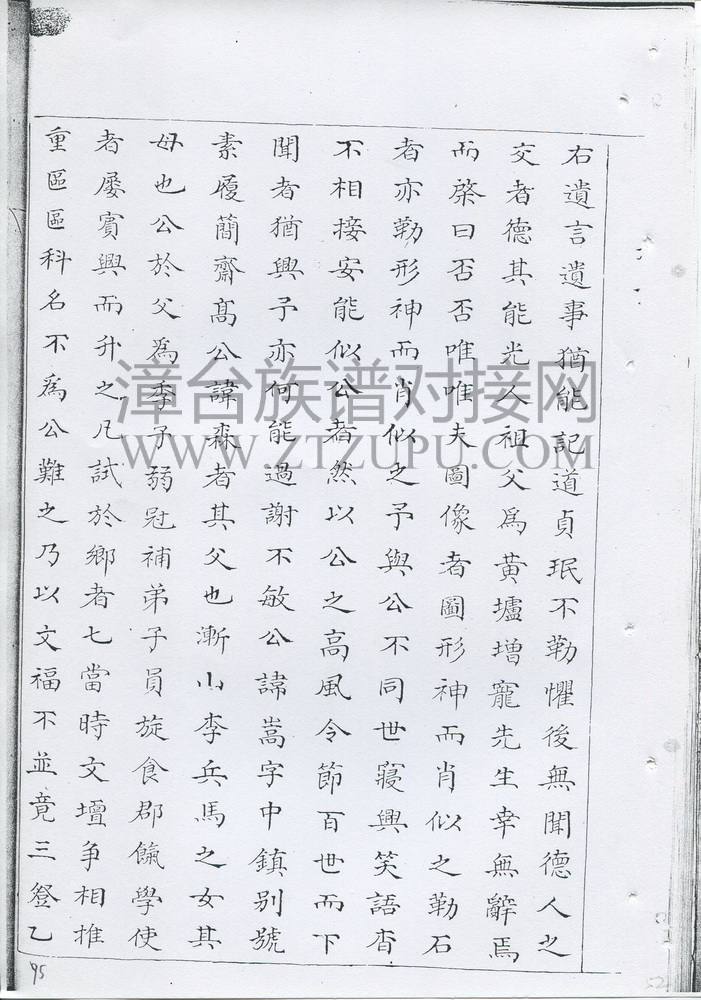 右遺言遺事猶能記道貞珉不勒懼後無聞德人之
交者德其能光人祖父爲黃壚増寵先生幸無辭焉
而棨曰否否唯唯夫圖像者圖形神而肖似之勒石
者亦勒形神而肖似之予與公不同世寤興笑語杳
不相接安能似公者然以公之高風令節百世而下
聞者猶興予亦何能過謝不敏公諱嵩字中鎮别號
素履簡齋髙公諱森者其父也漸山李兵馬之女其
母也公於父爲季子弱冠補弟子員旋食郡餼學使
者屡賓興而升之凡試於鄉者七當時文壇争相推
重區區科名不爲公難之乃以文福不並竟三登乙
漳台族谱对接网
WWW.ZTZUPU.COM
95